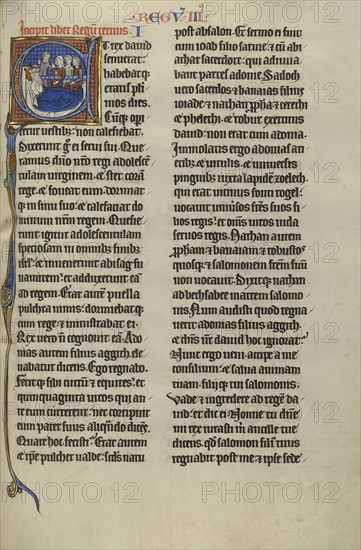 REGV III
Incipit liber Regum tercius. I
T rex david
senuerat:
habebatqꝫ
etatis pli
mos dies.
Cūqꝫ opi
retur uestibꝫ: non calefiebat.
Dixerunt gͦ ei serui sui. Que
ramus dn̄o nr̄o regi adolescē
tulam uirginem. ⁊ stet corā
rege. ⁊ foueat eum: dormiat
qꝫ in sinu suo: ⁊ calefaciat do
minum nr̄m regem. Quesie
runt igitur adolescentulam
speciosam in omnibꝫ finibꝫ
isrl̄. ⁊ inuenerunt abisag su
namitem: ⁊ adduxerunt eā
ad regem. Erat autem puella
pulchra nimis: dormiebatqꝫ
cum rege: ⁊ ministrabat ei.
Rex uero n̄ cognouit eam. Ad
onias autem filius aggith: ele
uabatur dicens. Ego regnabo.
Fecitqꝫ sibi currū ⁊ equites: ⁊
quinquaginta uiros qui an
te eum currerent: nec corripuit
eum pater suus aliqn̄do dicēs.
Quare hoc fecisti? Erat autem
⁊ ip̄e pulcher ualde: scd̄s natu
post absalon. Et sermo ei fuit
cum ioab filio saruie: ⁊ cū abi
athar sacerdote: qui adiuua
bant partes adonie. Sadoch
uero sacerdos ⁊ banaias filius
ioiade: ⁊ nathan ꝓpha: ⁊ cerethi
⁊ phelethi: ⁊ robur exercitus
dauid: non erat cum adonia.
Immolatis ergo adonias ari
etibꝫ ⁊ uitulis. ⁊ uniuersis
pinguibꝫ iuxta lapidē zoeleth.
qui erat uicinus fonti rogel:
uocauit uniuersos fr̄es suos fi
lios regis: ⁊ om̄s uiros iuda
seruos regis. Nathan autem
ꝓpham ⁊ banaiam ⁊ robustos
quosqꝫ ⁊ salomonem frēm suū
non uocauit. Dixit gͦ nathan
ad bethsabee matrem salomo
nis. Num audisti quod regna
uerit adonias filius aggith.
⁊ dn̄s nr̄ dauid hoc ignorat?
Nunc ergo ueni: accipe a me
consilium: ⁊ salua animam
tuam: filiiqꝫ tui salomonis.
Uade ⁊ ingredere ad regem da
uid: ⁊ dic ei. Nonne tu dn̄e
mi rex iurasti m̄ ancille tue
dicens. qd̄ salomon fili̾ tuus
regnabit post me: ⁊ ip̄e sede